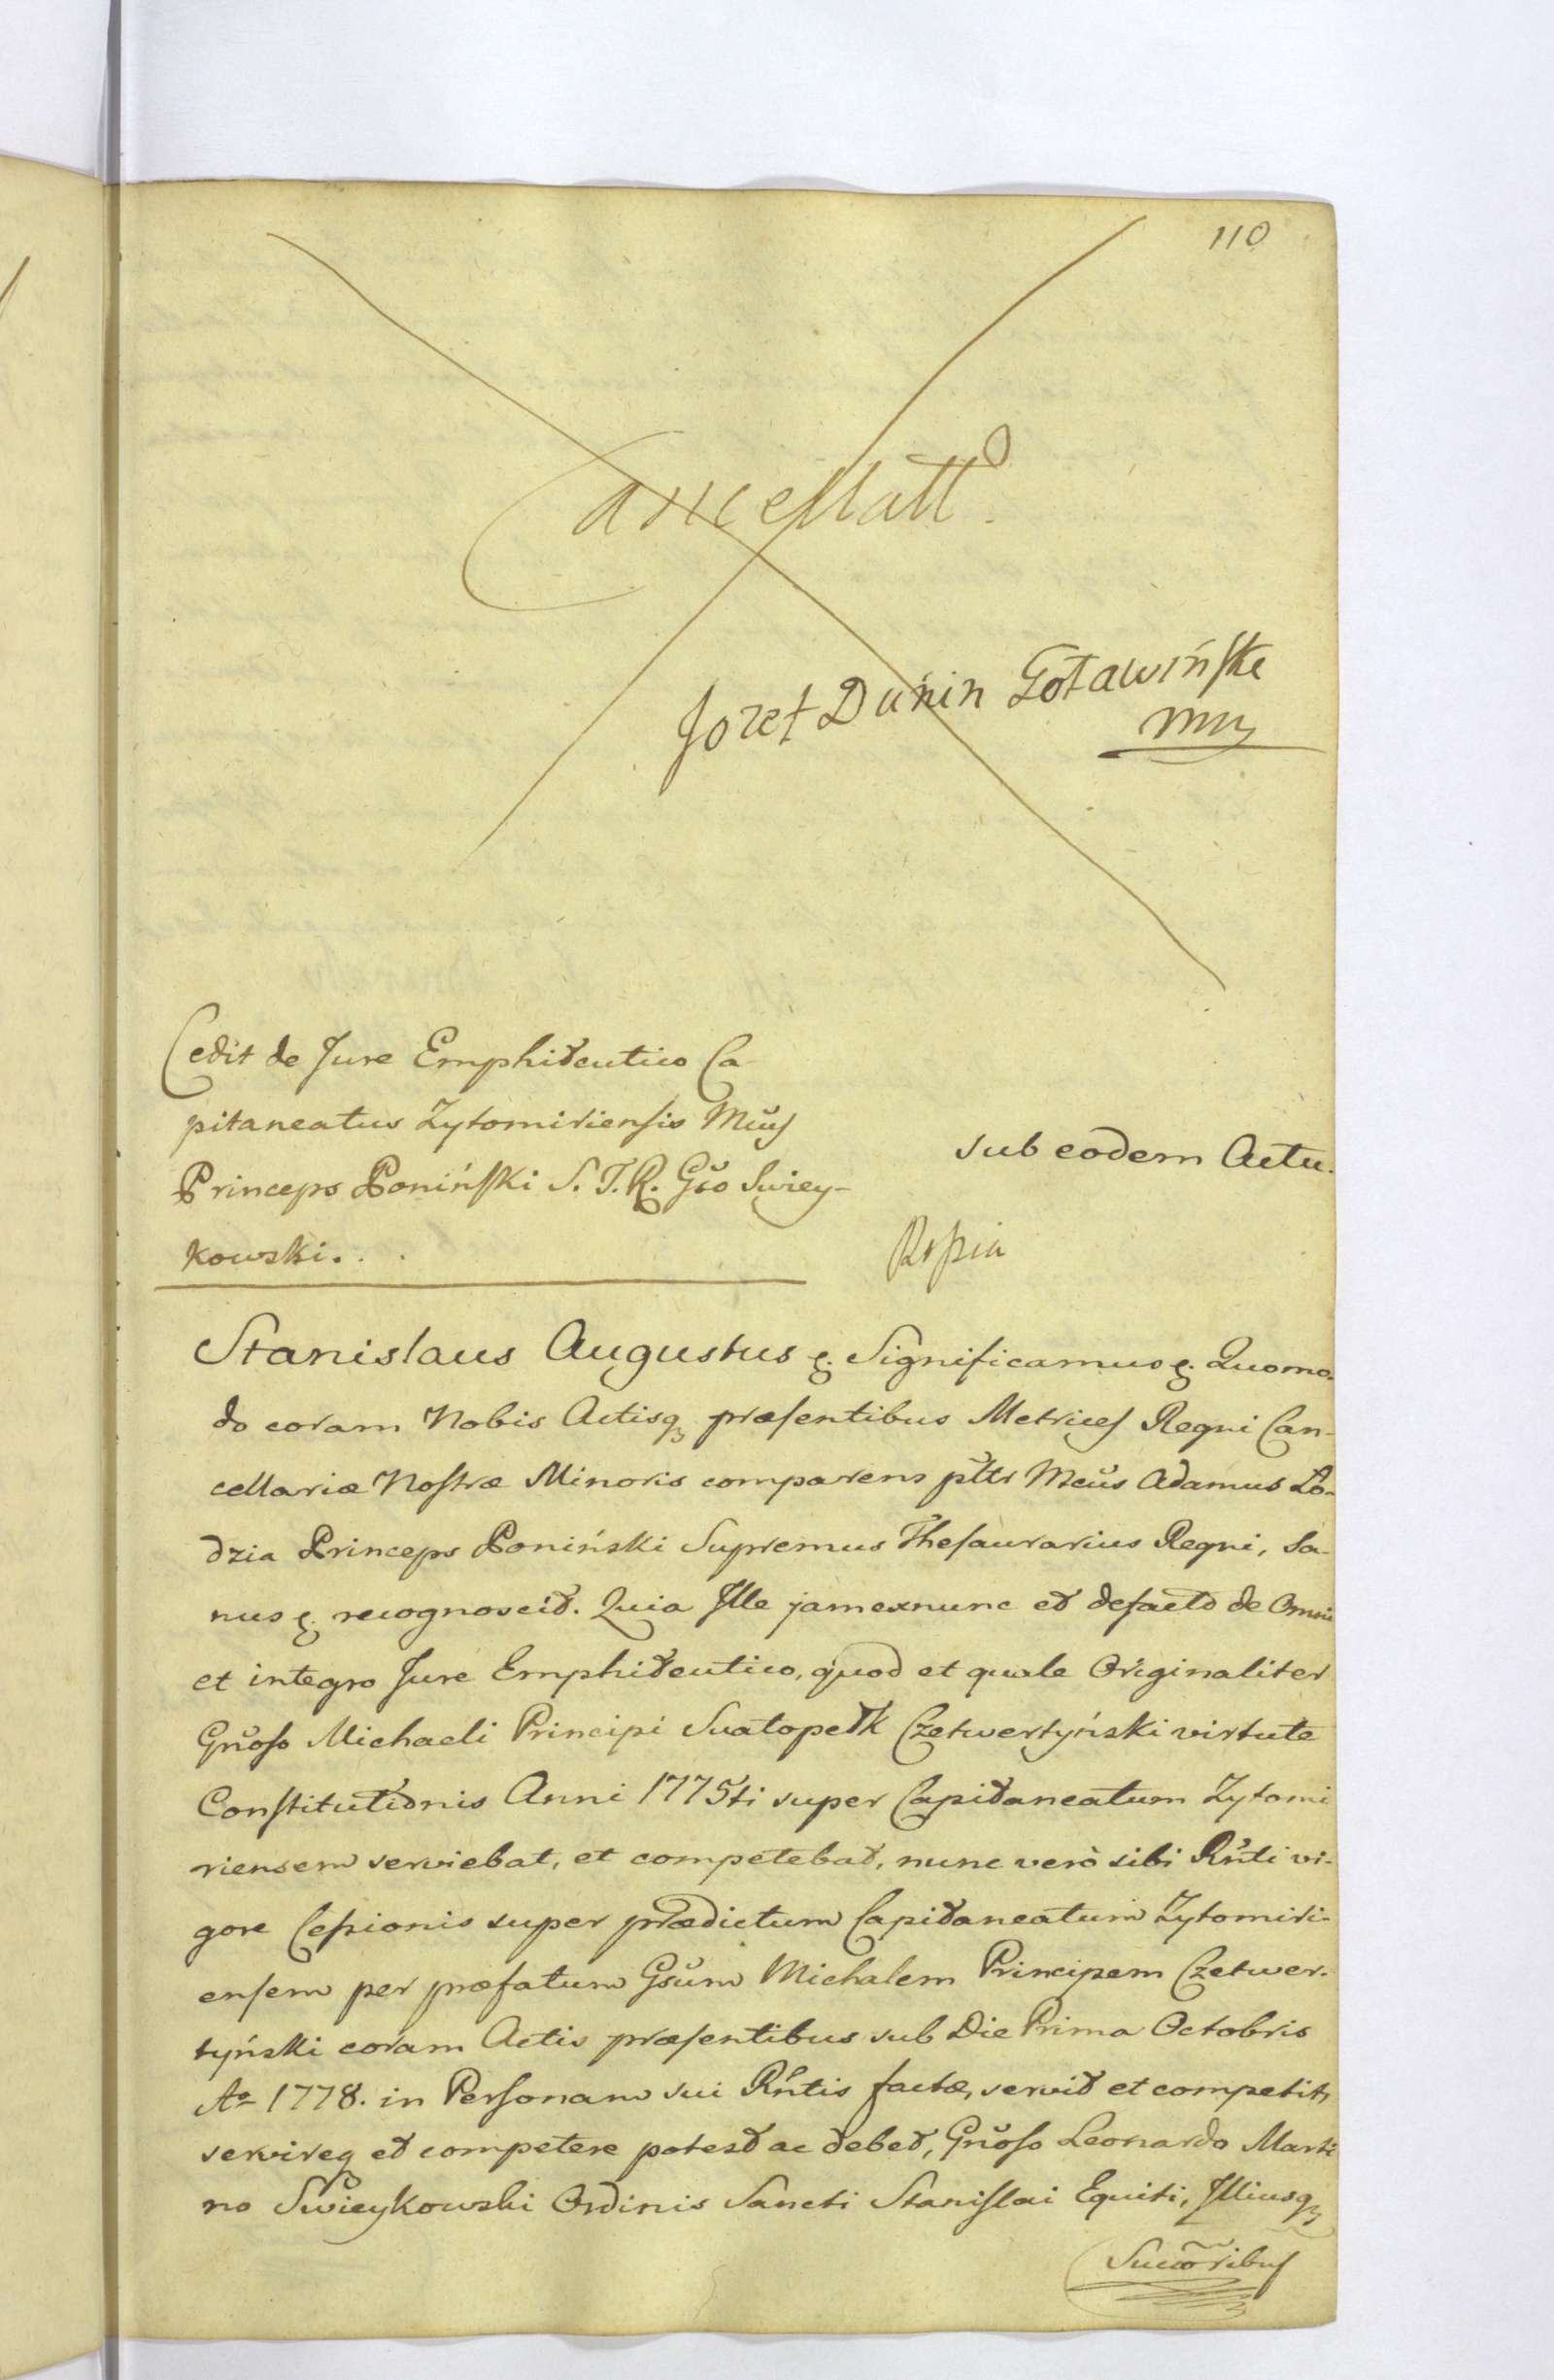 110
Cancellatt
Jozef Dunin Goławińsk
mp
Cedit de Jure Emphiteutico Ca-
pitaneatus Zytomiriensis Mcus
Princeps Poninski S. T. R. Gso Swiey-
kowski.
sub eodem Actu.
Stanislaus Augustus &. Significamus &. Quomo-
do coram Nobis Actisq præsentibus Metrices Regni Can-
cellariæ Nostræ Minoris comparens psttr Mcus Adamus Ło-
dzia Princeps Poniński Supremus Thesaurarius Regni, Sa-
nus &. recognoscit. Quia Ille jamexnunc et defacto de Omni
et integro Jure Emphiteutico, quod et quale Originaliter
Gnoso Michaeli Principi Swatopełk Czetwertyński virtute
Constitutionis Anni 1775ti super Capitaneatum Zytomi
riensem serviebat, et competebat, nunc verò sibi Rnti vi-
gore Cessionis super prædictum Capitaneatum Zytomiri-
ensem per præfatum Gsum Michalem Principem Czetwer-
tyński coram Actis præsentibus sub Die Prima Octobris
Ao 1778. in Personam sui Rntis factæ, servit et competit,
servireq et competere potest ac debet, Gnoso Leonardo Marti
no Swieykowski Ordinis Sancti Stanislai Equiti, Illiusq
Succoribus